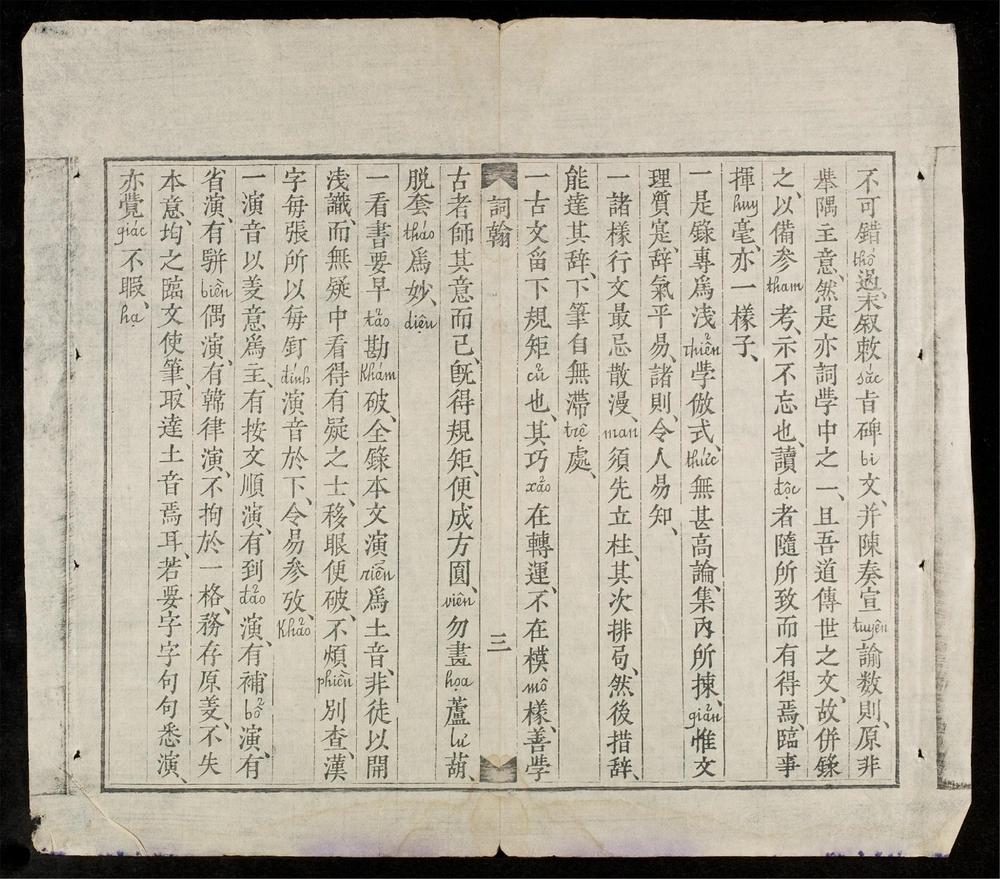 不可錯thố過、末叙敕sắc旨碑bi文、并陳奏宣tuyên諭数則、原非
舉隅主意、然是亦詞學中之一、且吾道傳世之文、故併錄
之、以備參tham考、示不忘也、讀độc者隨所致而有得焉、臨事
揮huy毫、亦一樣子、
一是錄專爲淺thiển學倣式、thức無甚高論、集內所揀、giản惟文
理質寔、辞氣平易、諸則、令人易知、
一諸樣行文最忌散漫、man須先立柱、其次排局、然後措辞、
能達其辞、下筆自無滯trệ處、
一古文留下規矩củ也、其巧xảo在轉運、不在模mô樣、善學
詞翰
三
古者師其意而已、旣得規矩、便成方圓、viên勿畫họa蘆lư葫、
脱套tháo爲妙、diệu
一看書要早tảo勘khám破、全錄本文演riễn爲土音、非徒以開
浅識、而無疑中看得有疑之士、移眼便破、不煩phiền別查、漢
字每張所以每釘đính演音於下、令易參攷、khảo
一演音以菱意爲主、有按文順演、有到đảo演、有補bổ演、有
省演、有騈biên偶演、有韓律演、不拘於一格、務存原菱、不失
本意、均之臨文使筆、取達土音焉耳、若要字字句句悉演、
亦覺giác不暇、hạ